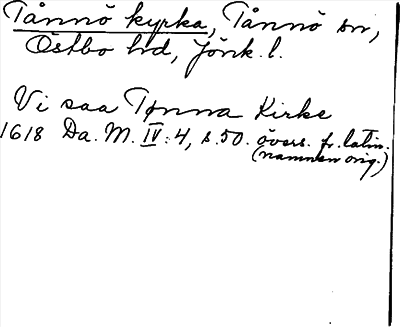 Tånnö kyrka, Tånnö sn,
Östbo hd, Jönk. l.
Vi saa Tønna Kirke
1618 Da. M. IV:4, s. 50. övers. fr. latin.
(namnen orig.)